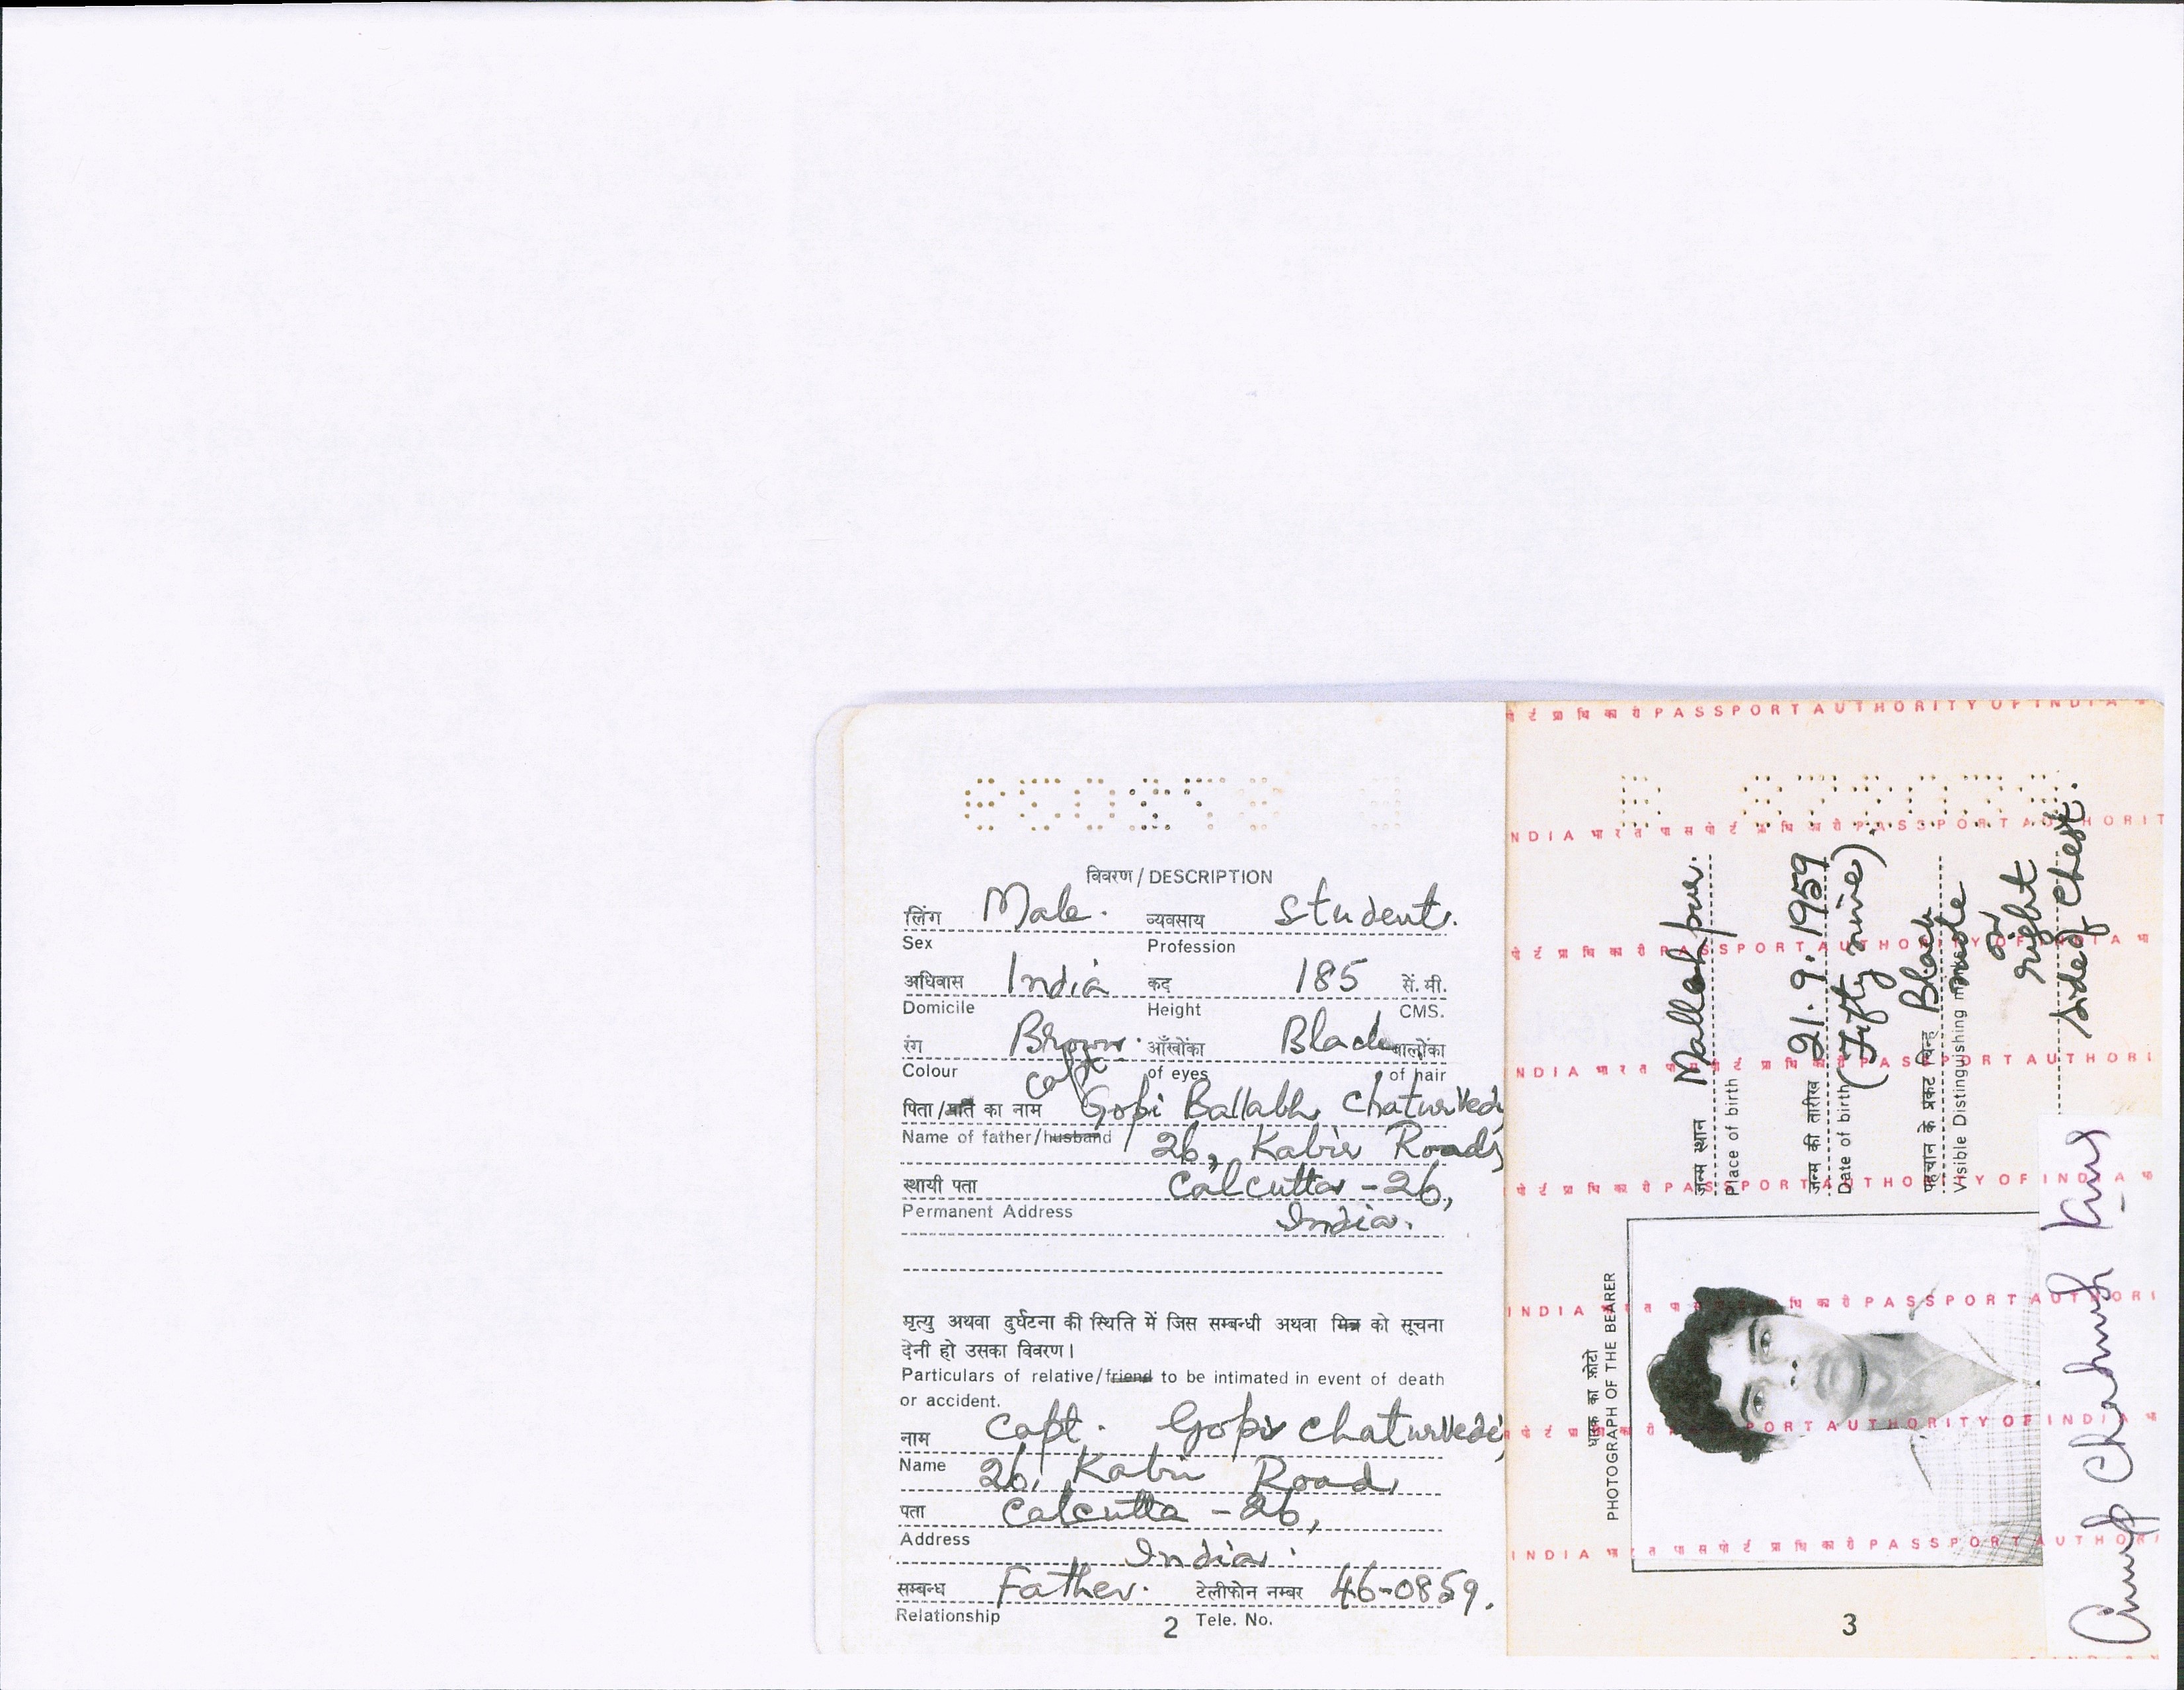 विवरण / DESCRIPTION
लिंग Male. व्यवसाय Student.
Sex Profession
अधिवास India कद 185 सें. मी.
Domicile Height CMS.
रंग Brown. आँखोंका Black बालोंका
Colour of eyes of hair
Capt
पिता / पति का नाम Gopi Ballabh Chaturvedi
Name of father/husband 26, Kabir Road,
स्थायी पता Calcutta - 26,
Permanent Address India.
मृत्यु अथवा दुर्घटना की स्थिति में जिस सम्बन्धी अथवा मित्र को सूचना
देनी हो उसका विवरण।
Particulars of relative/friend to be intimated in event of death
or accident.
नाम Capt. Gopi Chaturvedi,
Name 26, Kabir Road
पता Calcutta - 26,
Address India.
सम्बन्ध Father. टेलीफोन नम्बर 46-0859.
Relationship Tele. No.
2
जन्म स्थान Mallahpur.
Place of birth
जन्म की तारीख 21.9.1959
Date of birth (Fifty nine)
पहचान के प्रकट चिन्ह Black
Visible Distinguishing mole
on
right
side of chest.
धारक का फ़ोटो
PHOTOGRAPH OF THE BEARER
3
भारत पासपोर्ट प्राधिकारी PASSPORT AUTHORITY OF INDIA